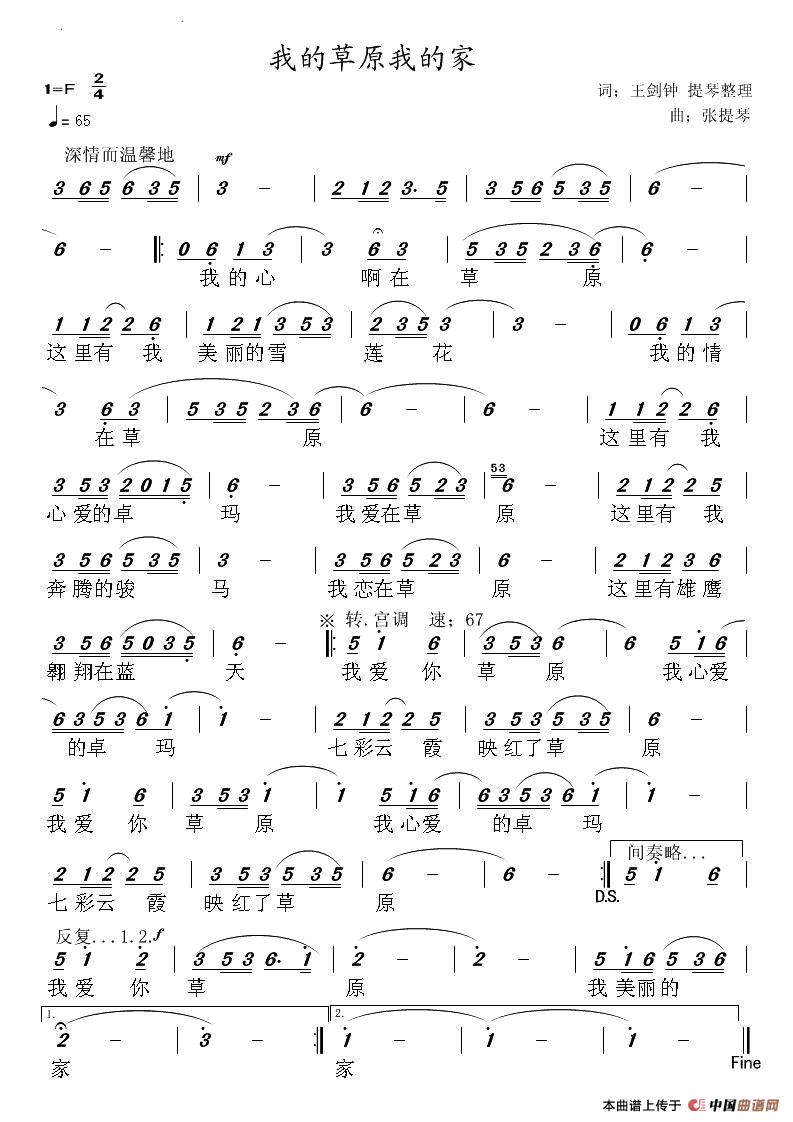 我的草原我的家
1=F 2/4
词；王剑钟 提琴整理
♩=65
曲；张提琴
深情而温馨地 mf
3 6 5 6 3 5 | 3 - | 2 1 2 3· 5 | 3 5 6 5 3 5 | 6 -
6 - ‖: 0 6 1 3 | 3 6 3 | 5 3 5 2 3 6 | 6 -
我的心 啊在 草 原
1 1 2 2 6 | 1 2 1 3 5 3 | 2 3 5 3 | 3 - | 0 6 1 3
这里有 我 美丽的雪 莲 花 我的情
3 6 3 | 5 3 5 2 3 6 | 6 - | 6 - | 1 1 2 2 6
在草 原 这里有 我
3 5 3 2 0 1 5 | 6 - | 3 5 6 5 2 3 | 53 6 - | 2 1 2 2 5
心爱的卓 玛 我爱在草 原 这里有 我
3 5 6 5 3 5 | 3 - | 3 5 6 5 2 3 | 6 - | 2 1 2 3 6
奔腾的骏 马 我恋在草 原 这里有雄鹰
※ 转.宫调 速；67
3 5 6 5 0 3 5 | 6 - ‖: 5 1 6 | 3 5 3 6 | 6 5 1 6
翱翔在蓝 天 我爱 你 草 原 我心爱
6 3 5 3 6 1 | 1 - | 2 1 2 2 5 | 3 5 3 5 3 5 | 6 -
的卓 玛 七彩云 霞 映红了草 原
5 1 6 | 3 5 3 1 | 1 5 1 6 | 6 3 5 3 6 1 | 1 -
我爱 你 草 原 我心爱 的卓 玛
间奏略...
2 1 2 2 5 | 3 5 3 5 3 5 | 6 - | 6 - :‖ 5 1 6
七彩云 霞 映红了草 原
D.S.
反复...1.2. f
5 1 2 | 3 5 3 6· 1 | 2 - | 2 - | 5 1 6 5 3 6
我爱 你 草 原 我美丽的
1. 2.
2 - | 3 - :‖ 1 - | 1 - | 1 - ‖
家 家
Fine
本曲谱上传于 中国曲谱网